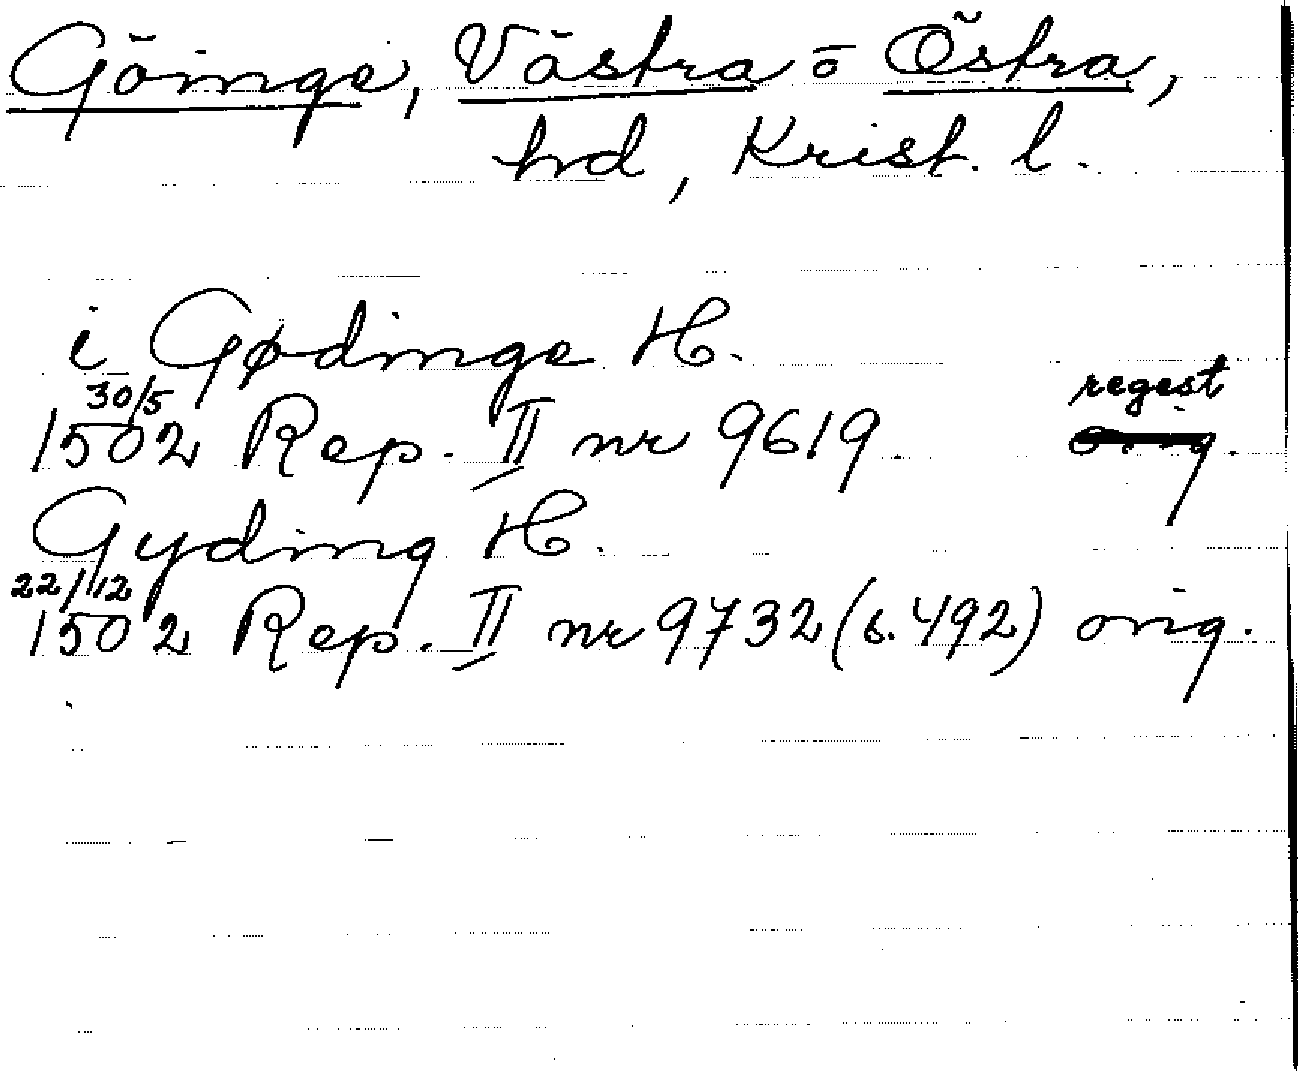 Göinge, Västra o Östra,
hd, Krist. l.
i Gødinge H.
30/5 regest
1502 Rep. II nr 9619 orig.
Gyding H.
22/12
1502 Rep. II nr 9732 (s. 492) orig.